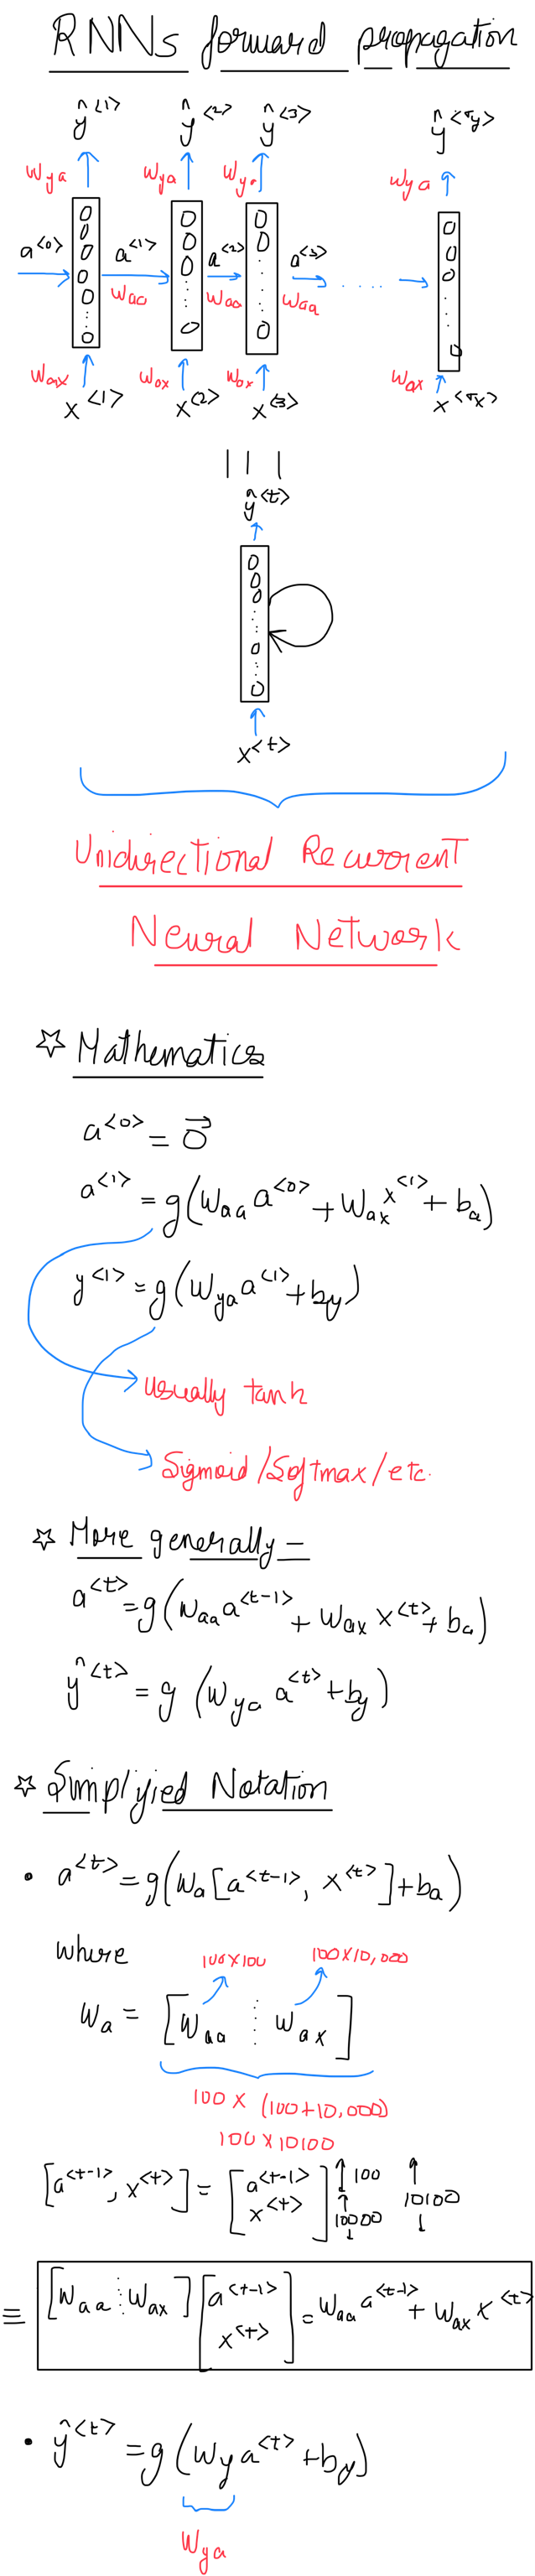 RNNs forward propagation
ŷ<1> ŷ<2> ŷ<3> ŷ<Ty>
Wya Wya Wya Wya
a<0> a<1> a<2> a<3> .....
Waa Waa Waa
Wax Wax Wax Wax
x<1> x<2> x<3> x<Tx>
| | |
ŷ<t>
x<t>
Unidirectional Recurrent
Neural Network
☆ Mathematics
a<0> = 0⃗
a<1> = g(Waa a<0> + Wax x<1> + ba)
y<1> = g(Wya a<1> + by)
usually tanh
Sigmoid/Softmax/etc.
☆ More generally -
a<t> = g(Waa a<t-1> + Wax x<t> + ba)
ŷ<t> = g (Wya a<t> + by)
☆ Simplyied Notation
• a<t> = g(Wa[a<t-1>, x<t>] + ba)
where
100x100 100x10,000
Wa = [Waa ⋮ Wax]
100 x (100+10,000)
100 x 10100
[a<t-1>, x<t>] = [a<t-1> x<t>] ↕100 ↕10000 ↕10100
≡ [Waa ⋮ Wax][a<t-1> x<t>] = Waa a<t-1> + Wax x<t>
• ŷ<t> = g(Wy a<t> + by)
Wya